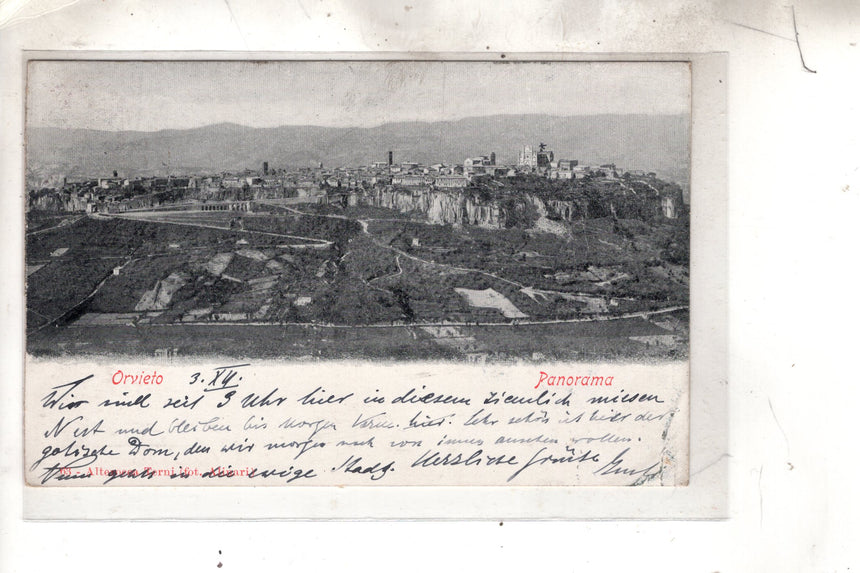 Orvieto 3. XII. Panorama
Wir sind seit 3 Uhr hier in diesem ziemlich miesen
Nest und bleiben bis morgen Vorm. hier. Sehr schön ist hier der
gotische Dom, den wir morgen noch von innen ansehen wollen.
- Alterocca Terni (fot. Alinari)
Nun gehts in die ewige Stadt. Herzliche Grüße